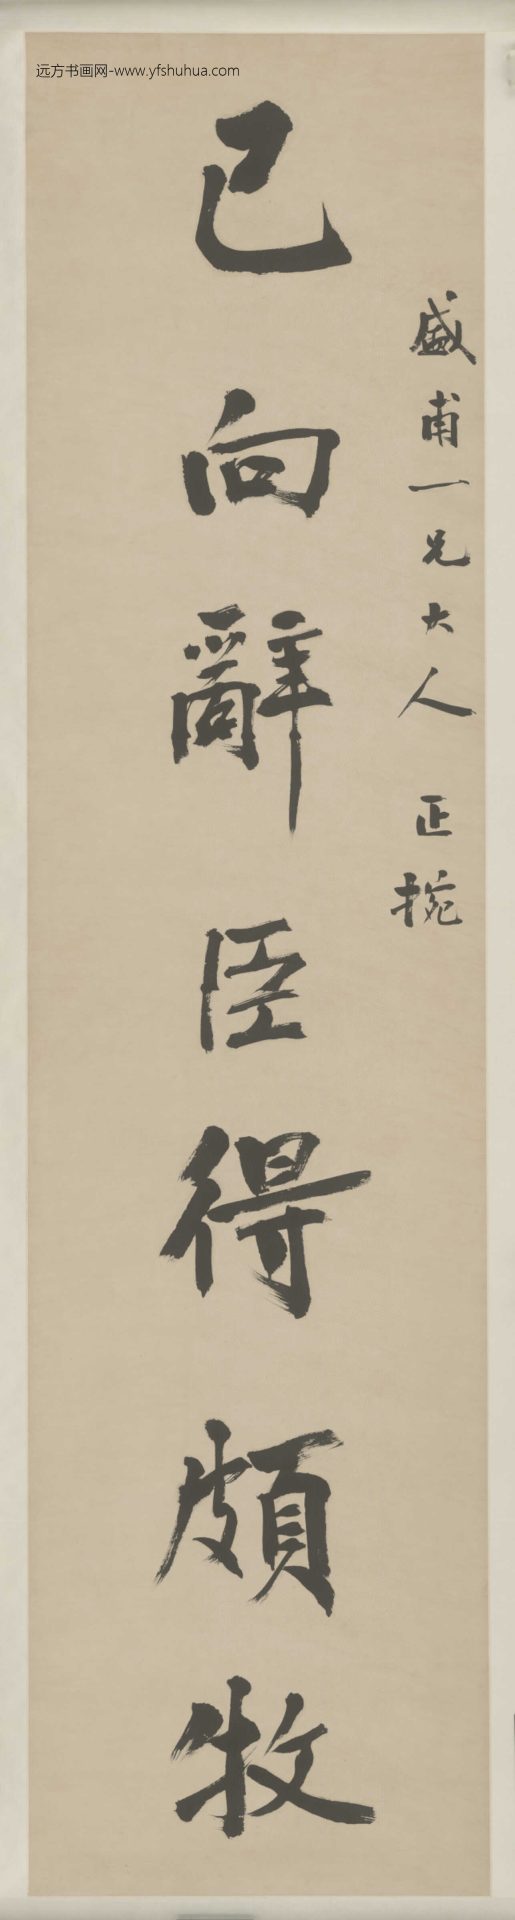 远方书画网-www.yfshuhua.com
盛甫一兄大人 正捥
已向辭臣得頗牧